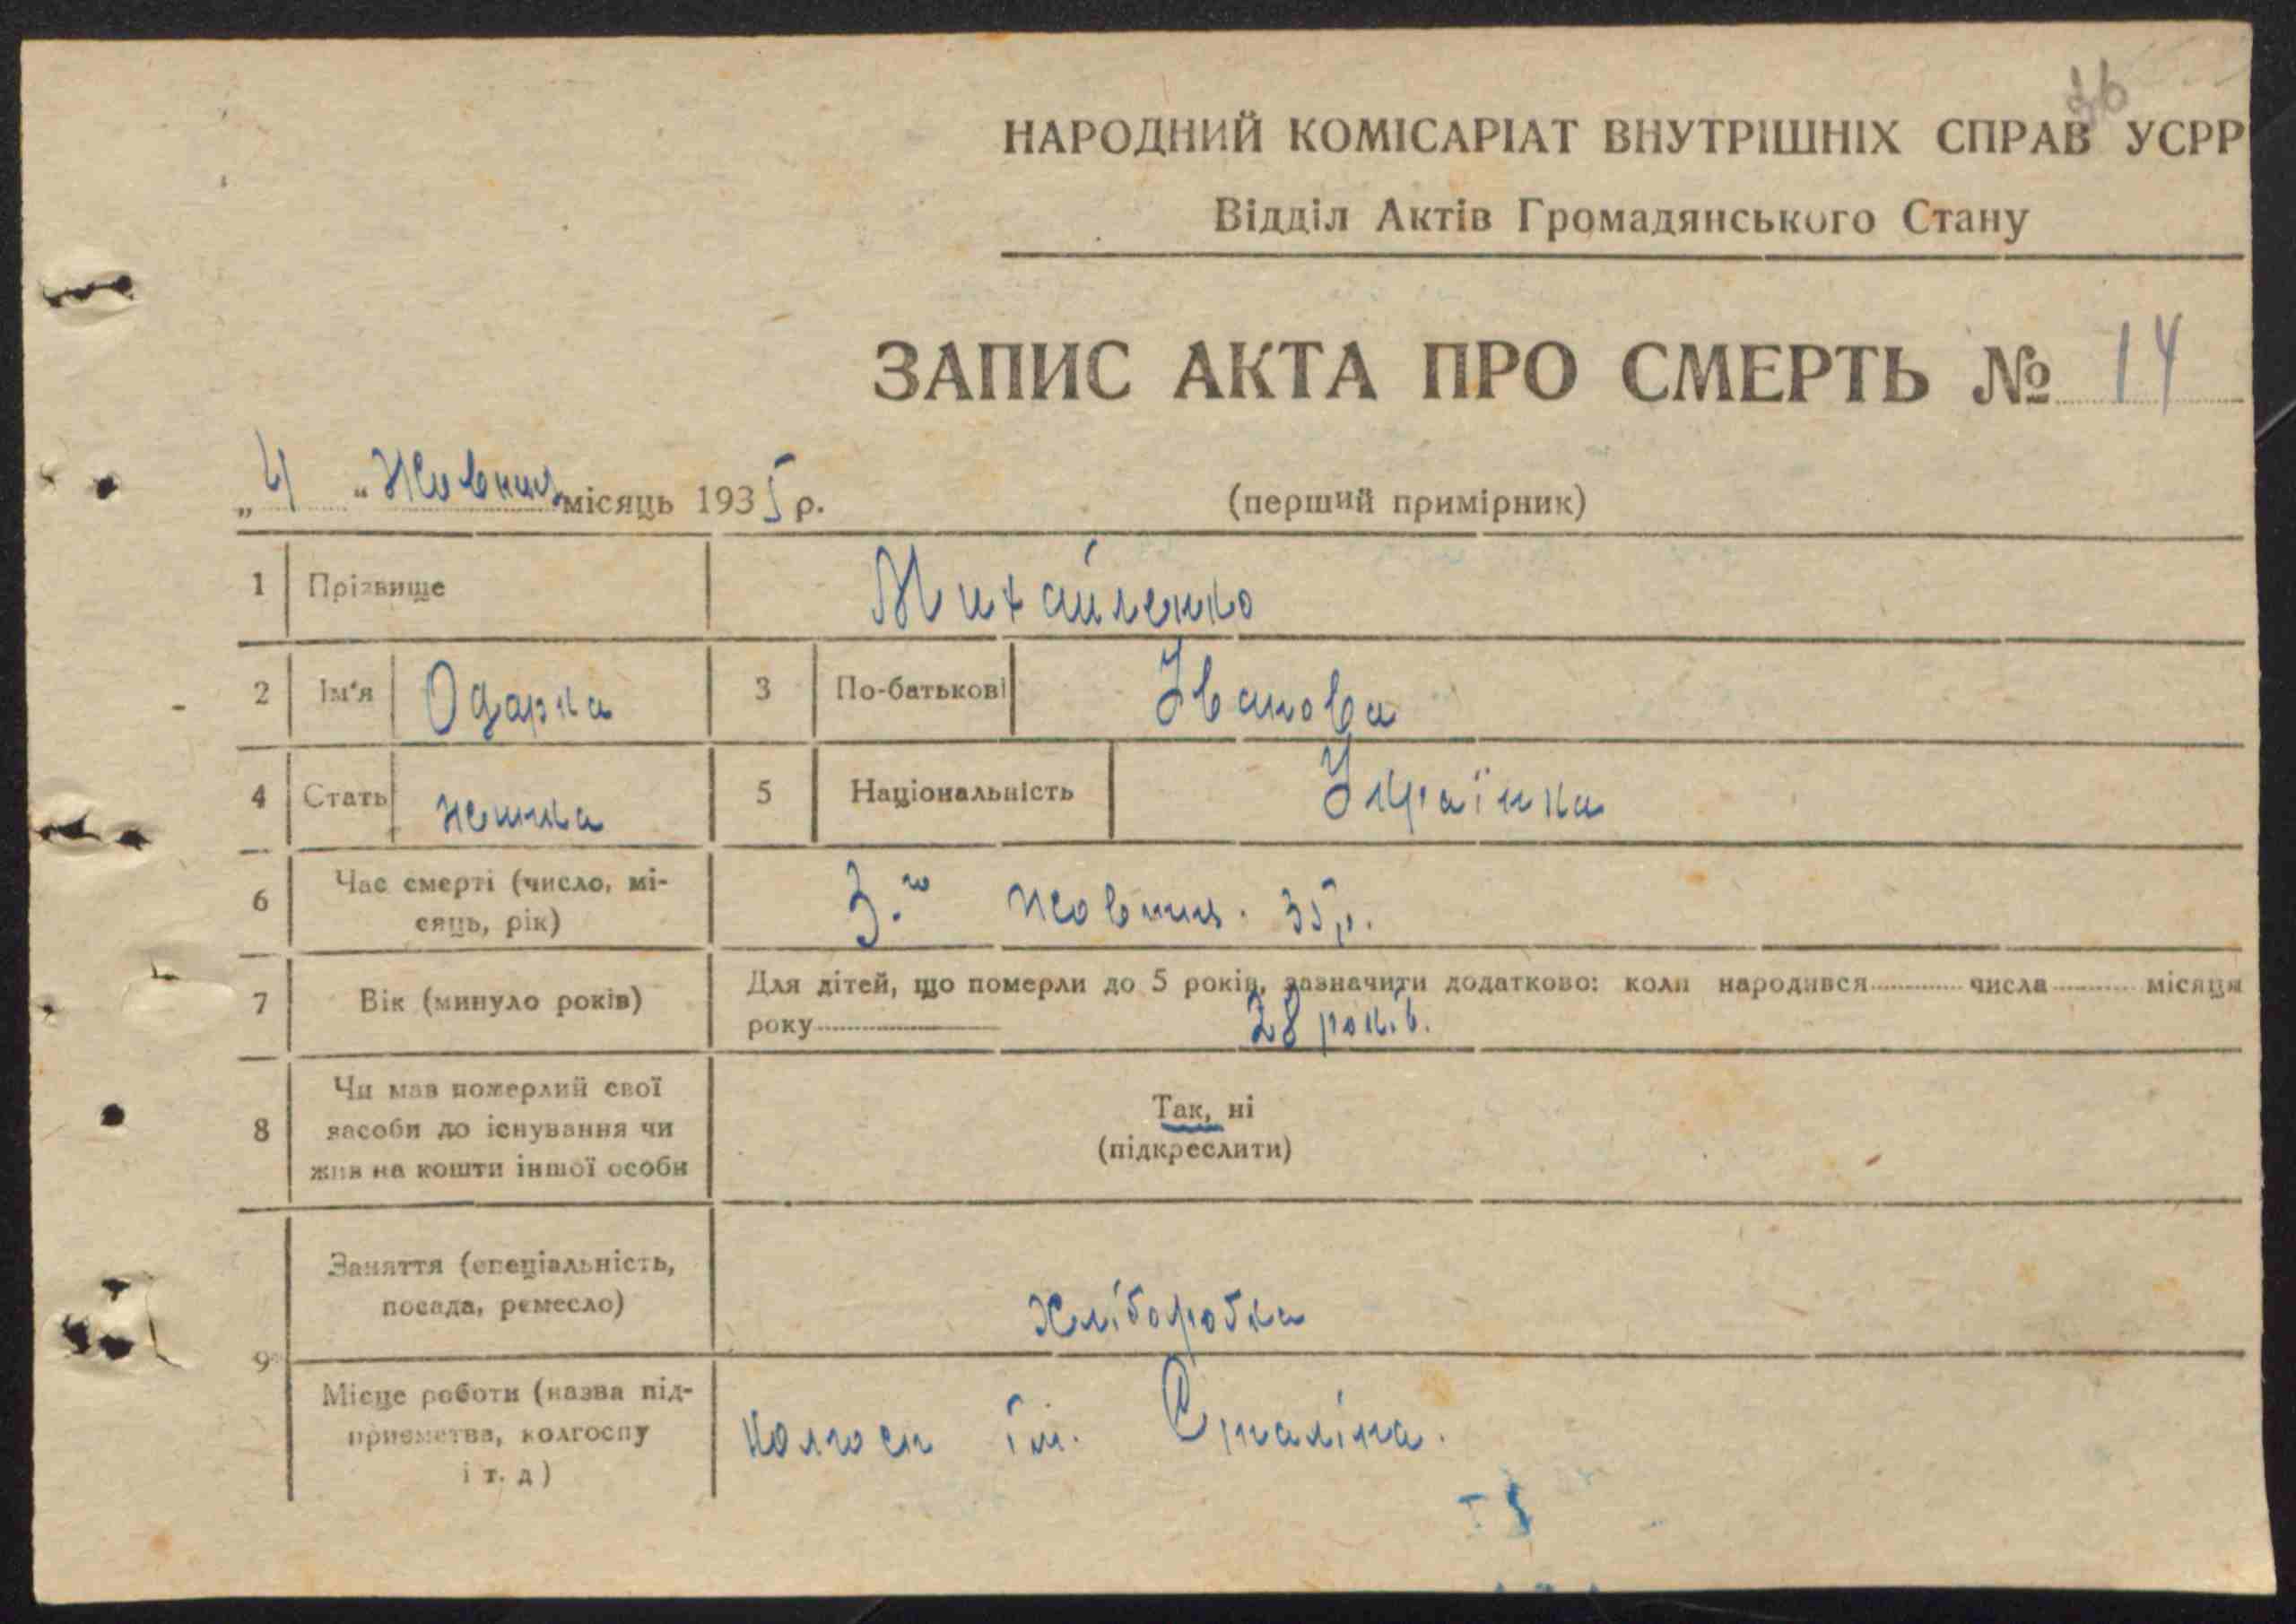 36
НАРОДНИЙ КОМІСАРІАТ ВНУТРІШНІХ СПРАВ УСРР
Відділ Актів Громадянського Стану
ЗАПИС АКТА ПРО СМЕРТЬ № 14
„4“ Жовтня місяць 1935 р. (перший примірник)
1 Прізвище Михайленко
2 Ім'я Одарка 3 По-батькові Іванова
4 Стать жінка 5 Національність Українка
6 Час смерті (число, мі-
сяць, рік) 3.го жовтня. 35 р.
7 Вік (минуло років) Для дітей, що померли до 5 років, зазначити додатково: коли народився числа місяця
року 28 років.
8 Чи мав померлий свої
засоби до існування чи
жив на кошти іншої особи
Так, ні
(підкреслити)
9 Заняття (спеціальність,
посада, ремесло) Хліборобка
Місце роботи (назва під-
приємства, колгоспу
і т. д) колгосп ім. Сталіна.